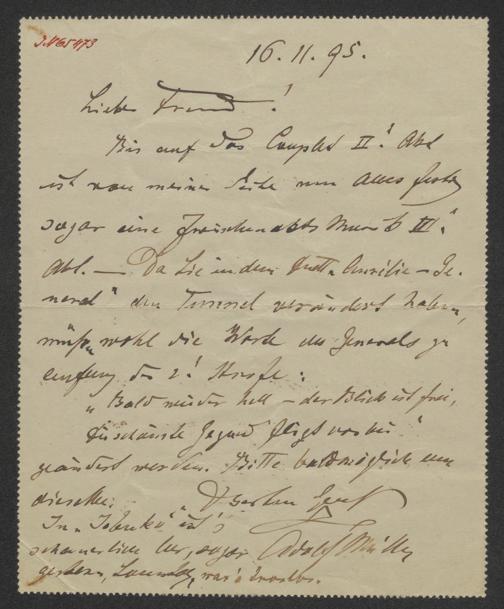 I.N. 65473
16.11.95.
Lieber Freund!
Bis auf das Couplet II. Akt
ist von meiner Seite nun Alles fertig
sogar eine Zwischenaktsmusik III.
Akt. — Da Sie in dem Duett "Aurelie - Ge-
neral" den Tunnel verändert haben,
müssen wohl die Worte des Generals zu
Anfang der 2. Strofe:
"Bald wieder hell - der Blick ist frei,
die schönste Gegend fliegt vorbei"
geändert werden. Bitte baldmöglich um
dieselben. Herzlichen Gruß
In "Jabuka" ist's
schauerlich leer, sogar Adolf Müller
gestern, Sonntag, war's